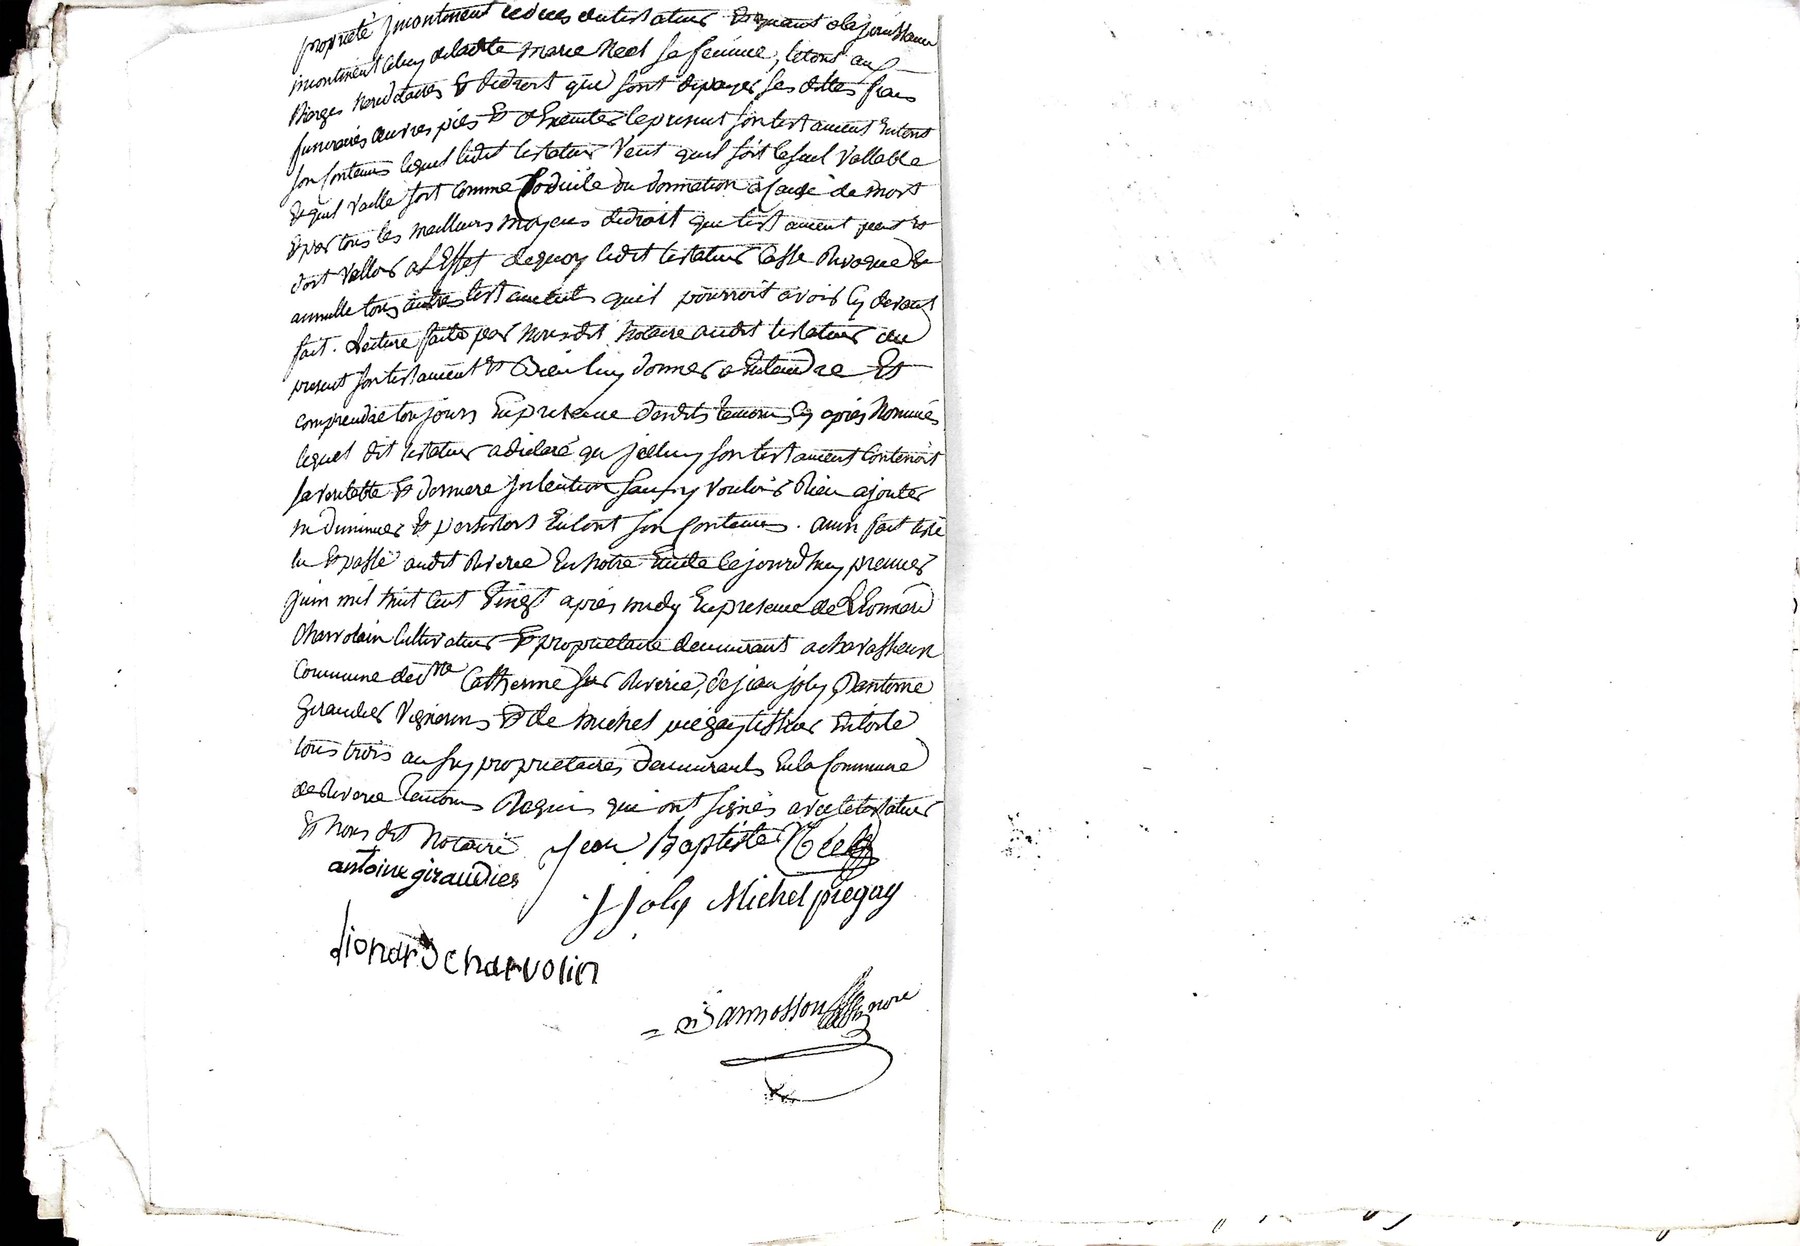 propriété incontinent le deces du testateur et quant a la jouissance
incontinent celuy de ladte marie Néel sa femme, letout aux
charges hereditaires et de droit qui sont de payer ses dettes frais
funeraires œuvres pies et d'executer le present son testament En tout
son Contenus lequel ledit testateur veut quil soit le seul vallable
Et quil vaille soit comme Codicile ou donnation a Cause de mort
Et par tous les meilleurs moyens de droit que testament peut et
doit valloir a L'Effet de quoy ledit testateur Casse Revoque Et
annulle tous autres testaments quil pourroit avoir Cy devant
fait. Lecture faite par nous dit notaire audit testateur du
present son testament Et Bien luy donner a Entendre Et
comprendre toujours En presence desdits temoins Cy après Nommés
lequel dit testateur a declaré qu jcelluy son testament Contenoit
sa veritable Et derniere jntention sans y vouloir Rien ajouter
ni diminuer Et persistoit En tout son Contenus. ainsi fait testé
lu Et passé audit Riverie En notre Etude Cejourd'huy premier
Juin mil huit Cent Vingt après midy En presence de Léonard
Charvolain Cultivateur Et proprietaire demeurant a chavassieux
Commune de Ste Catherine sur Riverie, de jean joly, d'antoine
Giraudier Vignerons Et de Michel piegay tisseur En toile
tous trois aussy proprietaires demeurants En la Commune
de Riverie temoins Requis qui ont signés avec le testateur
Et Nous dit Notaire Jean Baptiste
antoine giraudier
J Joly Michel piegay
lionard charvolin
Bannosson nore